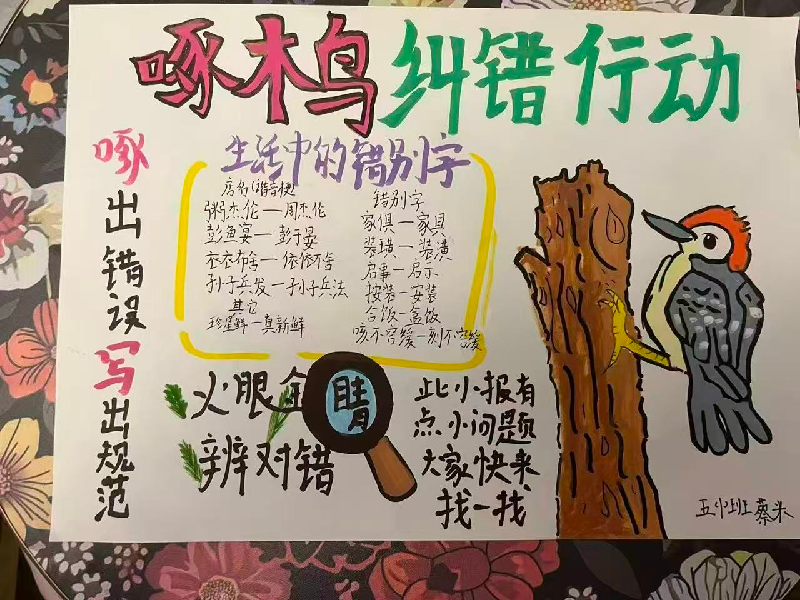 啄木鸟纠错行动
啄出错误写出规范
生活中的错别字
粥杰伦—周杰伦
彭鱼宴—彭于晏
衣衣布舍—依依不舍
孙子兵发—孙子兵法
其它
珍蓥鲜—真新鲜
错别字
家俱—家具
装璜—装潢
启事—启示
按装—安装
合饭—盒饭
咳不容缓—刻不容缓
火眼金睛
辨对错
此小报有
点小问题
大家快来
找一找